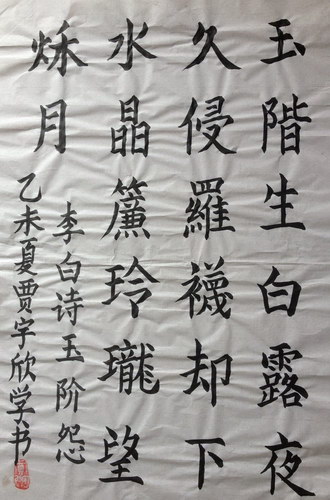 玉階生白露夜
久侵羅襪却下
水晶簾玲瓏望
秌月
李白诗玉阶怨
乙未夏贾宇欣学书